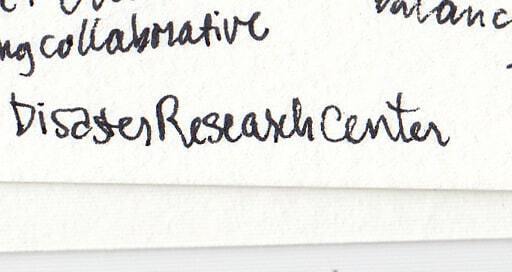 balanc
ng collaborative
Disaster Research Center